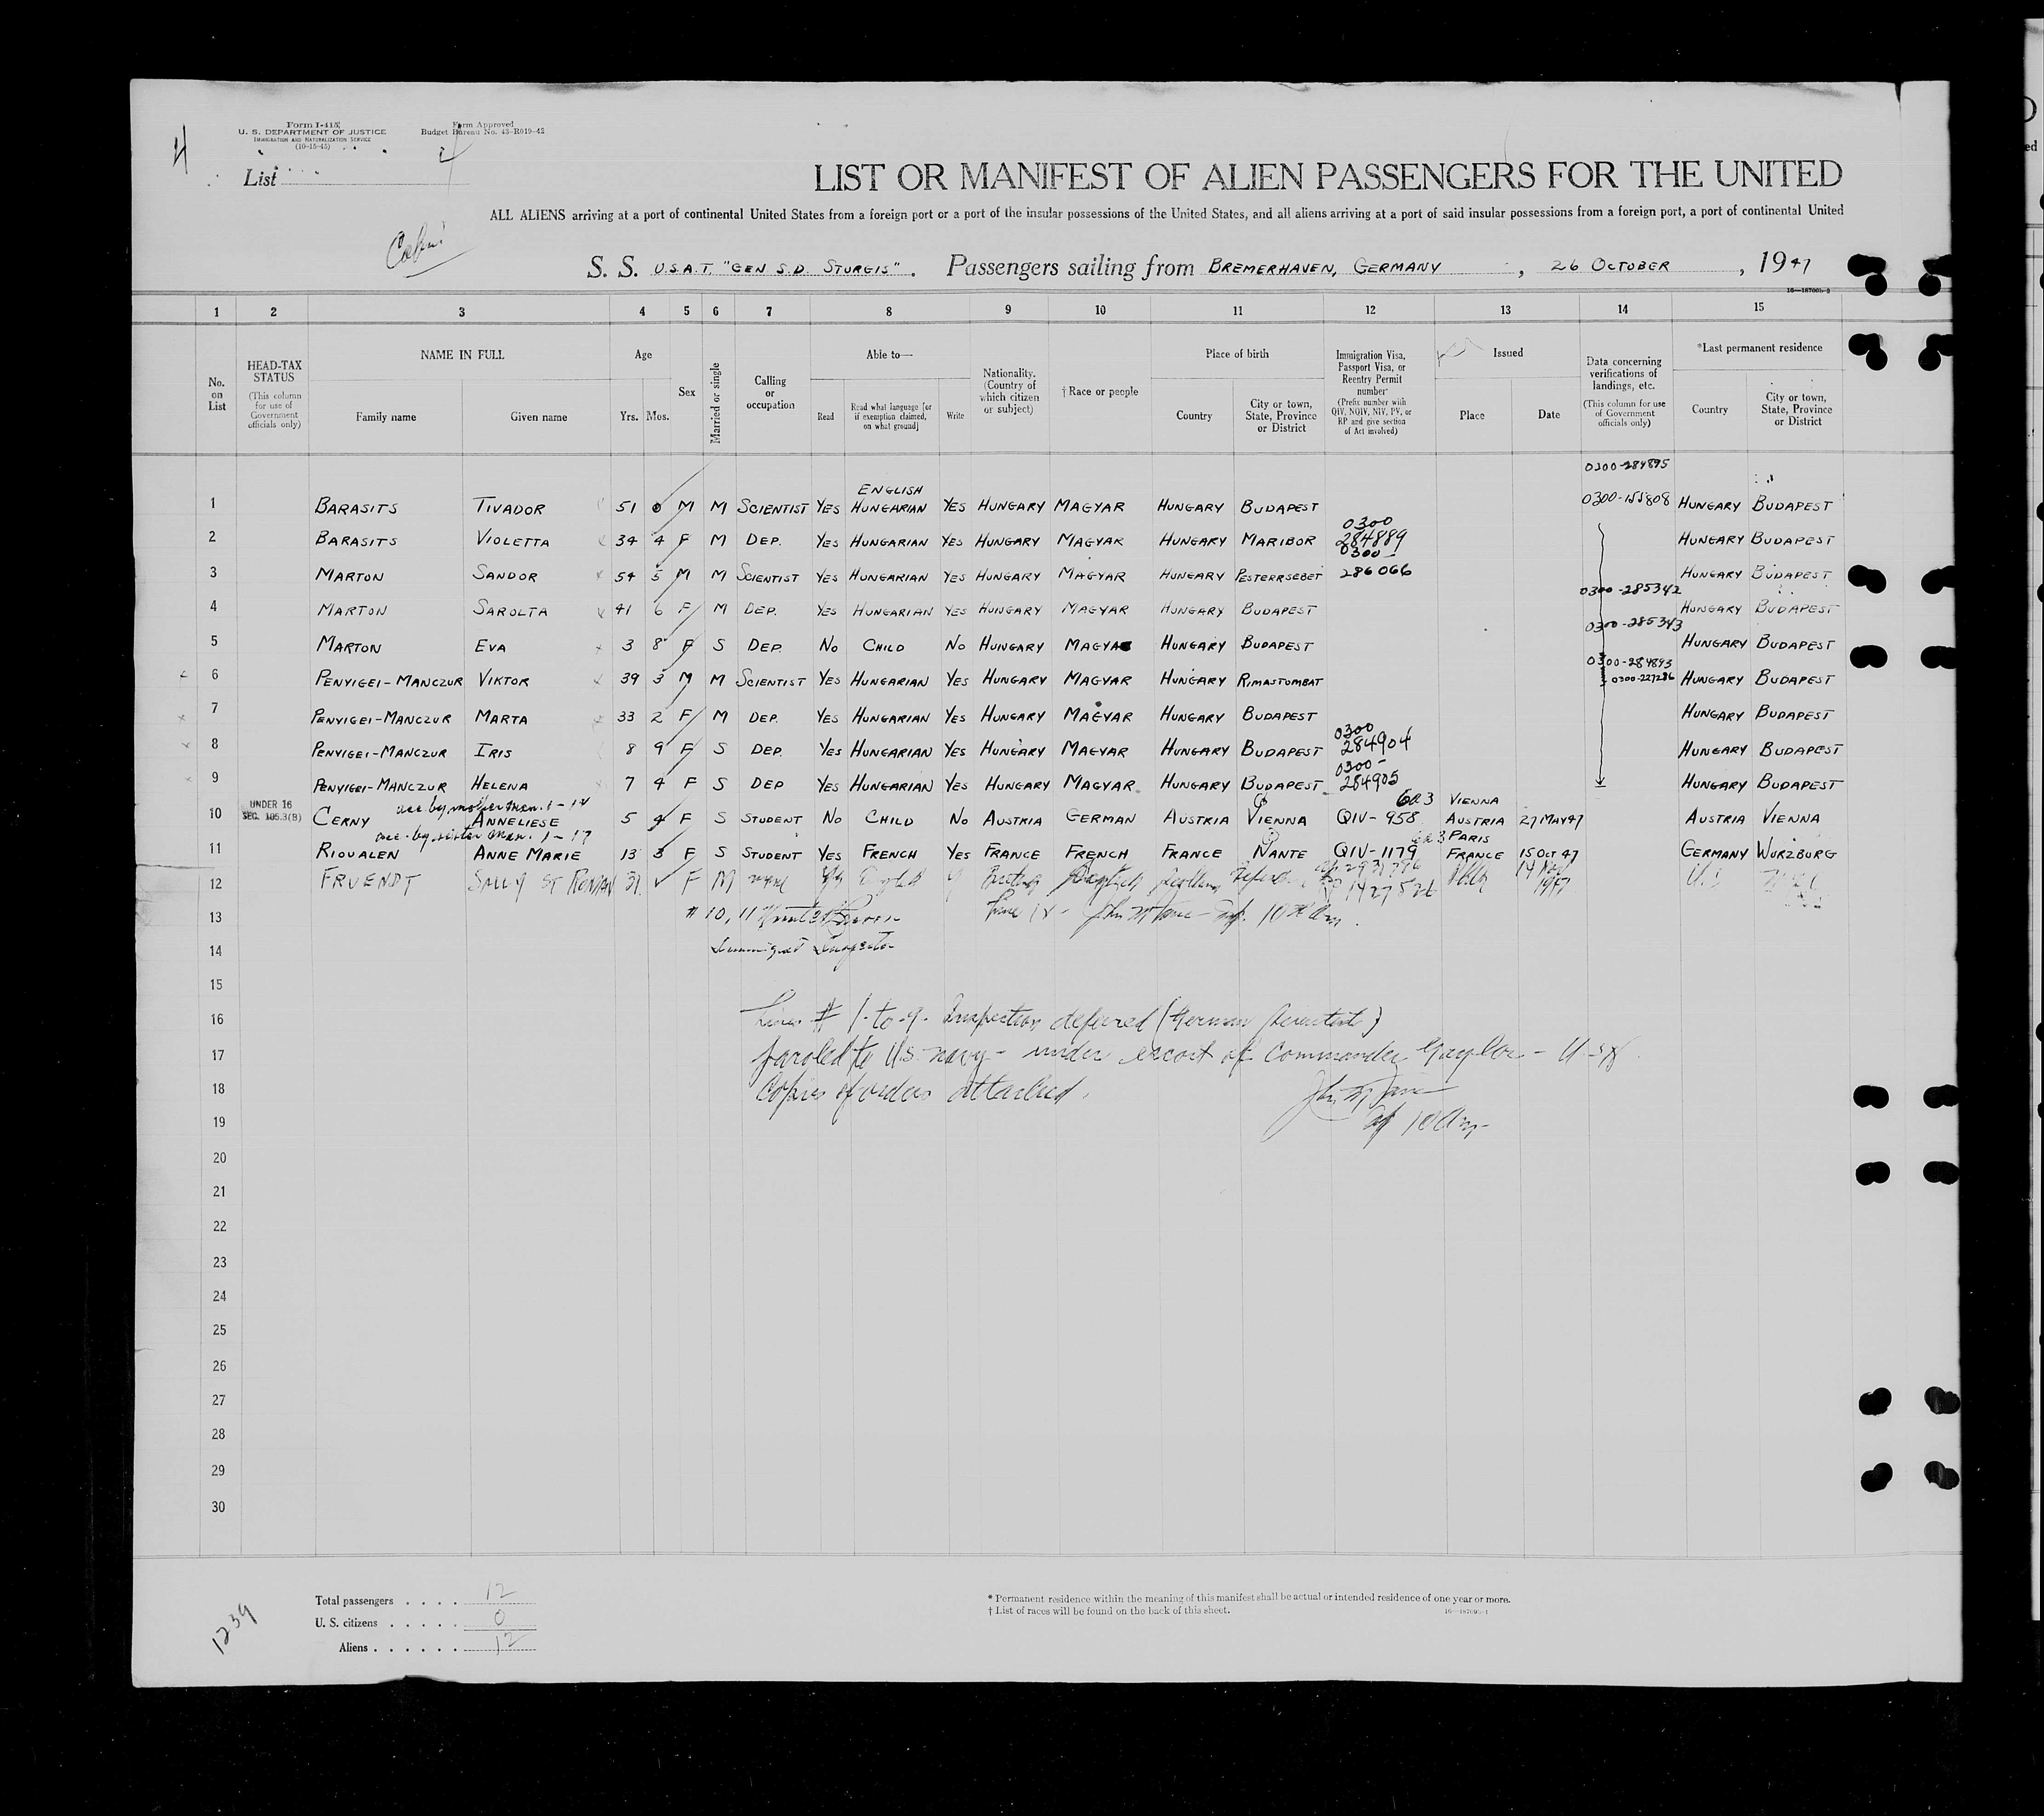 4
Form I-415
U. S. DEPARTMENT OF JUSTICE
IMMIGRATION AND NATURALIZATION SERVICE
(10-15-45)
Form Approved
Budget Bureau No. 43-R019-42
List
LIST OR MANIFEST OF ALIEN PASSENGERS FOR THE UNITED
ALL ALIENS arriving at a port of continental United States from a foreign port or a port of the insular possessions of the United States, and all aliens arriving at a port of said insular possessions from a foreign port, a port of continental United
S. S. U.S.A.T. "GEN S.D. STURGIS". Passengers sailing from BREMERHAVEN, GERMANY, 26 OCTOBER, 1947
1 2 3 4 5 6 7 8 9 10 11 12 13 14 15
No. on List
HEAD-TAX STATUS (This column for use of Government officials only)
NAME IN FULL Family name Given name
Age Yrs. Mos.
Sex
Married or single
Calling or occupation
Able to— Read Read what language [or if exemption claimed, on what ground] Write
Nationality. (Country of which citizen or subject)
† Race or people
Place of birth Country City or town, State, Province or District
Immigration Visa, Passport Visa, or Reentry Permit number (Prefix number with QIV, NQIV, NIV, PV, or RP and give section of Act involved)
Issued Place Date
Data concerning verifications of landings, etc. (This column for use of Government officials only)
*Last permanent residence Country City or town, State, Province or District
0300-284895
ENGLISH
1 BARASITS TIVADOR 51 0 M M SCIENTIST YES HUNGARIAN YES HUNGARY MAGYAR HUNGARY BUDAPEST 0300-155808 HUNGARY BUDAPEST
2 BARASITS VIOLETTA 34 4 F M DEP. YES HUNGARIAN YES HUNGARY MAGYAR HUNGARY MARIBOR 0300 284889 HUNGARY BUDAPEST
3 MARTON SANDOR 54 5 M M SCIENTIST YES HUNGARIAN YES HUNGARY MAGYAR HUNGARY PESTERRSEBET 0300- 286066 HUNGARY BUDAPEST
4 MARTON SAROLTA 41 6 F M DEP. YES HUNGARIAN YES HUNGARY MAGYAR HUNGARY BUDAPEST 0300-285342 HUNGARY BUDAPEST
5 MARTON EVA 3 8 F S DEP. NO CHILD NO HUNGARY MAGYAR HUNGARY BUDAPEST 0300-285343 HUNGARY BUDAPEST
6 PENYIGEI-MANCZUR VIKTOR 39 3 M M SCIENTIST YES HUNGARIAN YES HUNGARY MAGYAR HUNGARY RIMASTOMBAT 0300-284893 0300-227286 HUNGARY BUDAPEST
7 PENYIGEI-MANCZUR MARTA 33 2 F M DEP. YES HUNGARIAN YES HUNGARY MAGYAR HUNGARY BUDAPEST HUNGARY BUDAPEST
8 PENYIGEI-MANCZUR IRIS 8 9 F S DEP. YES HUNGARIAN YES HUNGARY MAGYAR HUNGARY BUDAPEST 0300 284904 HUNGARY BUDAPEST
9 PENYIGEI-MANCZUR HELENA 7 4 F S DEP YES HUNGARIAN YES HUNGARY MAGYAR HUNGARY BUDAPEST 0300- 284905 HUNGARY BUDAPEST
acc by mother man. 1-14
10 UNDER 16 SEC. 105.3(B) CERNY ANNELIESE 5 9 F S STUDENT NO CHILD NO AUSTRIA GERMAN AUSTRIA VIENNA 6a3 QIV-958 VIENNA AUSTRIA 27 MAY 47 AUSTRIA VIENNA
acc. by sister man. 1-17
11 RIOUALEN ANNE MARIE 13 3 F S STUDENT YES FRENCH YES FRANCE FRENCH FRANCE NANTE 6a3 QIV-1179 PARIS FRANCE 15 OCT 47 GERMANY WURZBURG
12 FRUENDT SALLY ST ROMAN 31 F M U.S.
13 # 10, 11
14 Immigrant Inspector
15
16 Lines # 1-to-9- Inspection deferred (German Scientists)
17 paroled to U.S. navy - under escort of Commander Gaylor - USN
18 Copies of orders attached.
19
20
21
22
23
24
25
26
27
28
29
30
Total passengers . . . . 12
U. S. citizens . . . . . 0
Aliens . . . . . . 12
* Permanent residence within the meaning of this manifest shall be actual or intended residence of one year or more.
† List of races will be found on the back of this sheet.
1239